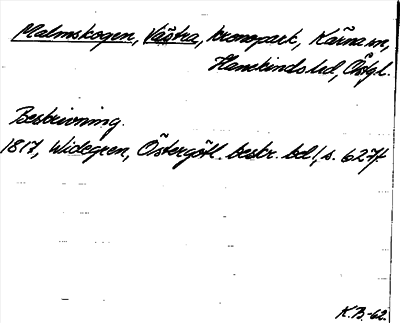 Malmskogen, Västra, kronopark, Kärna sn,
Hanekinds hd, Östgl.
Beskrivning.
1817, Widegren, Östergötl. beskr. bd 1, s. 627f
K.B.-62.